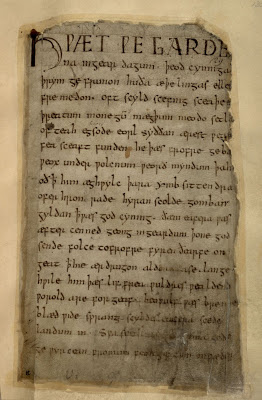 HǷÆT ǷE GARDE
na ingear dagum. þeod cyninga
þrym ge frunon huða æþelingas ellen
fremedon. oft scyld scefing sceaþe
þreatum monegū mægþum meodo setla
of teah egsode eorl syððan ærest ƿear
fea sceaft funden he þæs frofre geba
ƿeox under ƿolcnum ƿeorð myndum þah
oð ꝥ him æghƿylc þara ymb sittendra
ofer hron rade hyran scolde gomban
gyldan ꝥ ƿæs god cyning. ðæm eafera ƿæs
æfter cenned geong ingeardum þone god
sende folce tofrofre fyren ðearfe on
geat ꝥ hie ær drugon aldor ase. lange
hƿile him þæs lif frea ƿuldres ƿealdend
ƿorold are forgeaf. beoƿulf ƿæs breme
blæd ƿide sprang scyldes eafera scede
landum in. Sƿa sceal uma gode
ge ƿyrcean fromum feoh giftum on